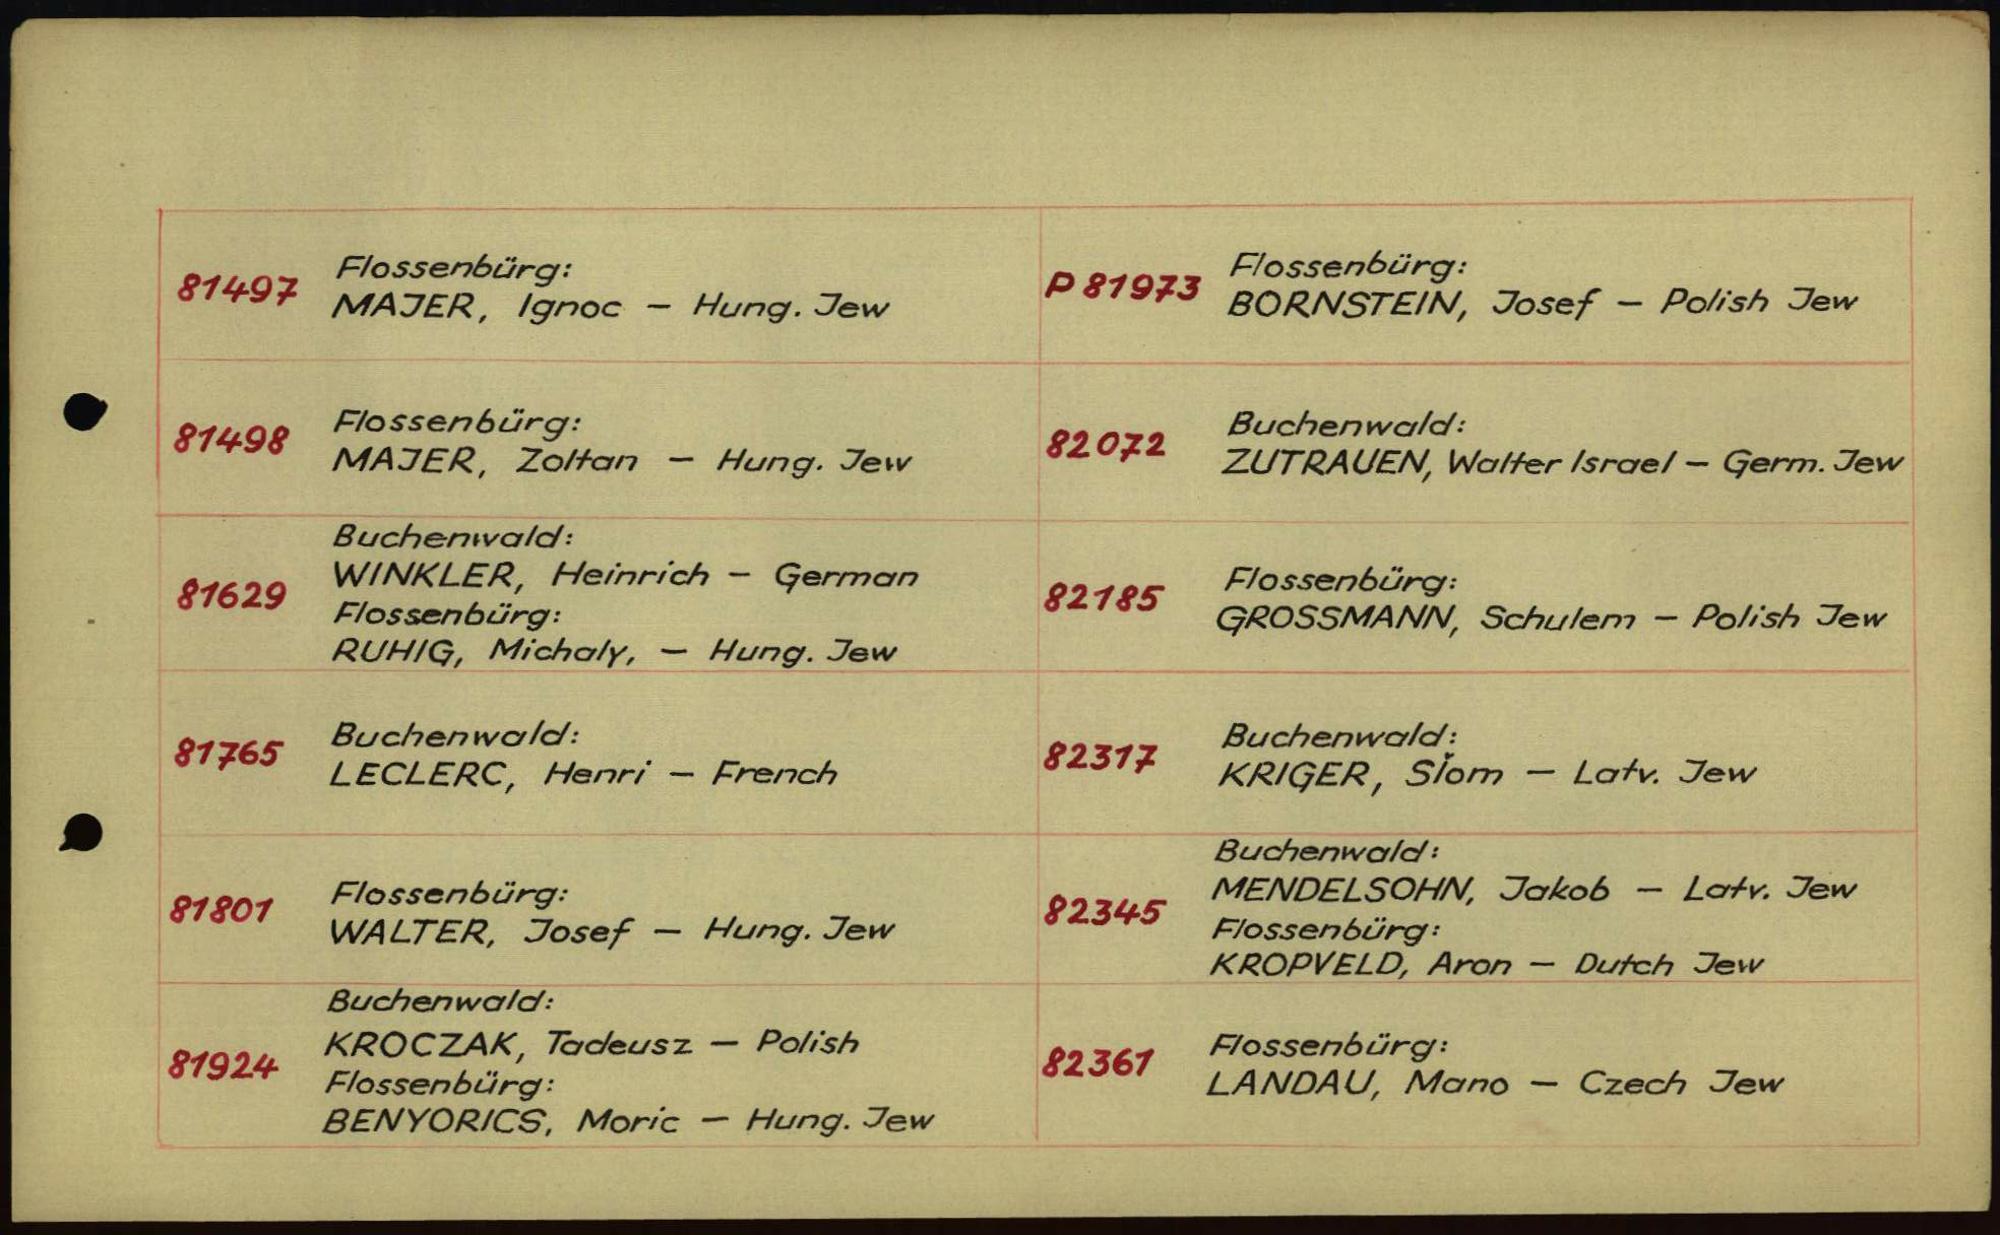 81497
Flossenbürg:
MAJER, Ignoc — Hung. Jew
81498
Flossenbürg:
MAJER, Zoltan — Hung. Jew
81629
Buchenwald:
WINKLER, Heinrich — German
Flossenbürg:
RUHIG, Michaly, — Hung. Jew
81765
Buchenwald:
LECLERC, Henri — French
81801
Flossenbürg:
WALTER, Josef — Hung. Jew
81924
Buchenwald:
KROCZAK, Tadeusz — Polish
Flossenbürg:
BENYORICS, Moric — Hung. Jew
P 81973
Flossenbürg:
BORNSTEIN, Josef — Polish Jew
82072
Buchenwald:
ZUTRAUEN, Walter Israel — Germ. Jew
82185
Flossenbürg:
GROSSMANN, Schulem — Polish Jew
82317
Buchenwald:
KRIGER, — Latv. Jew
82345
Buchenwald:
MENDELSOHN, Jakob — Latv. Jew
Flossenbürg:
KROPVELD, Aron — Dutch Jew
82361
Flossenbürg:
LANDAU, Mano — Czech Jew